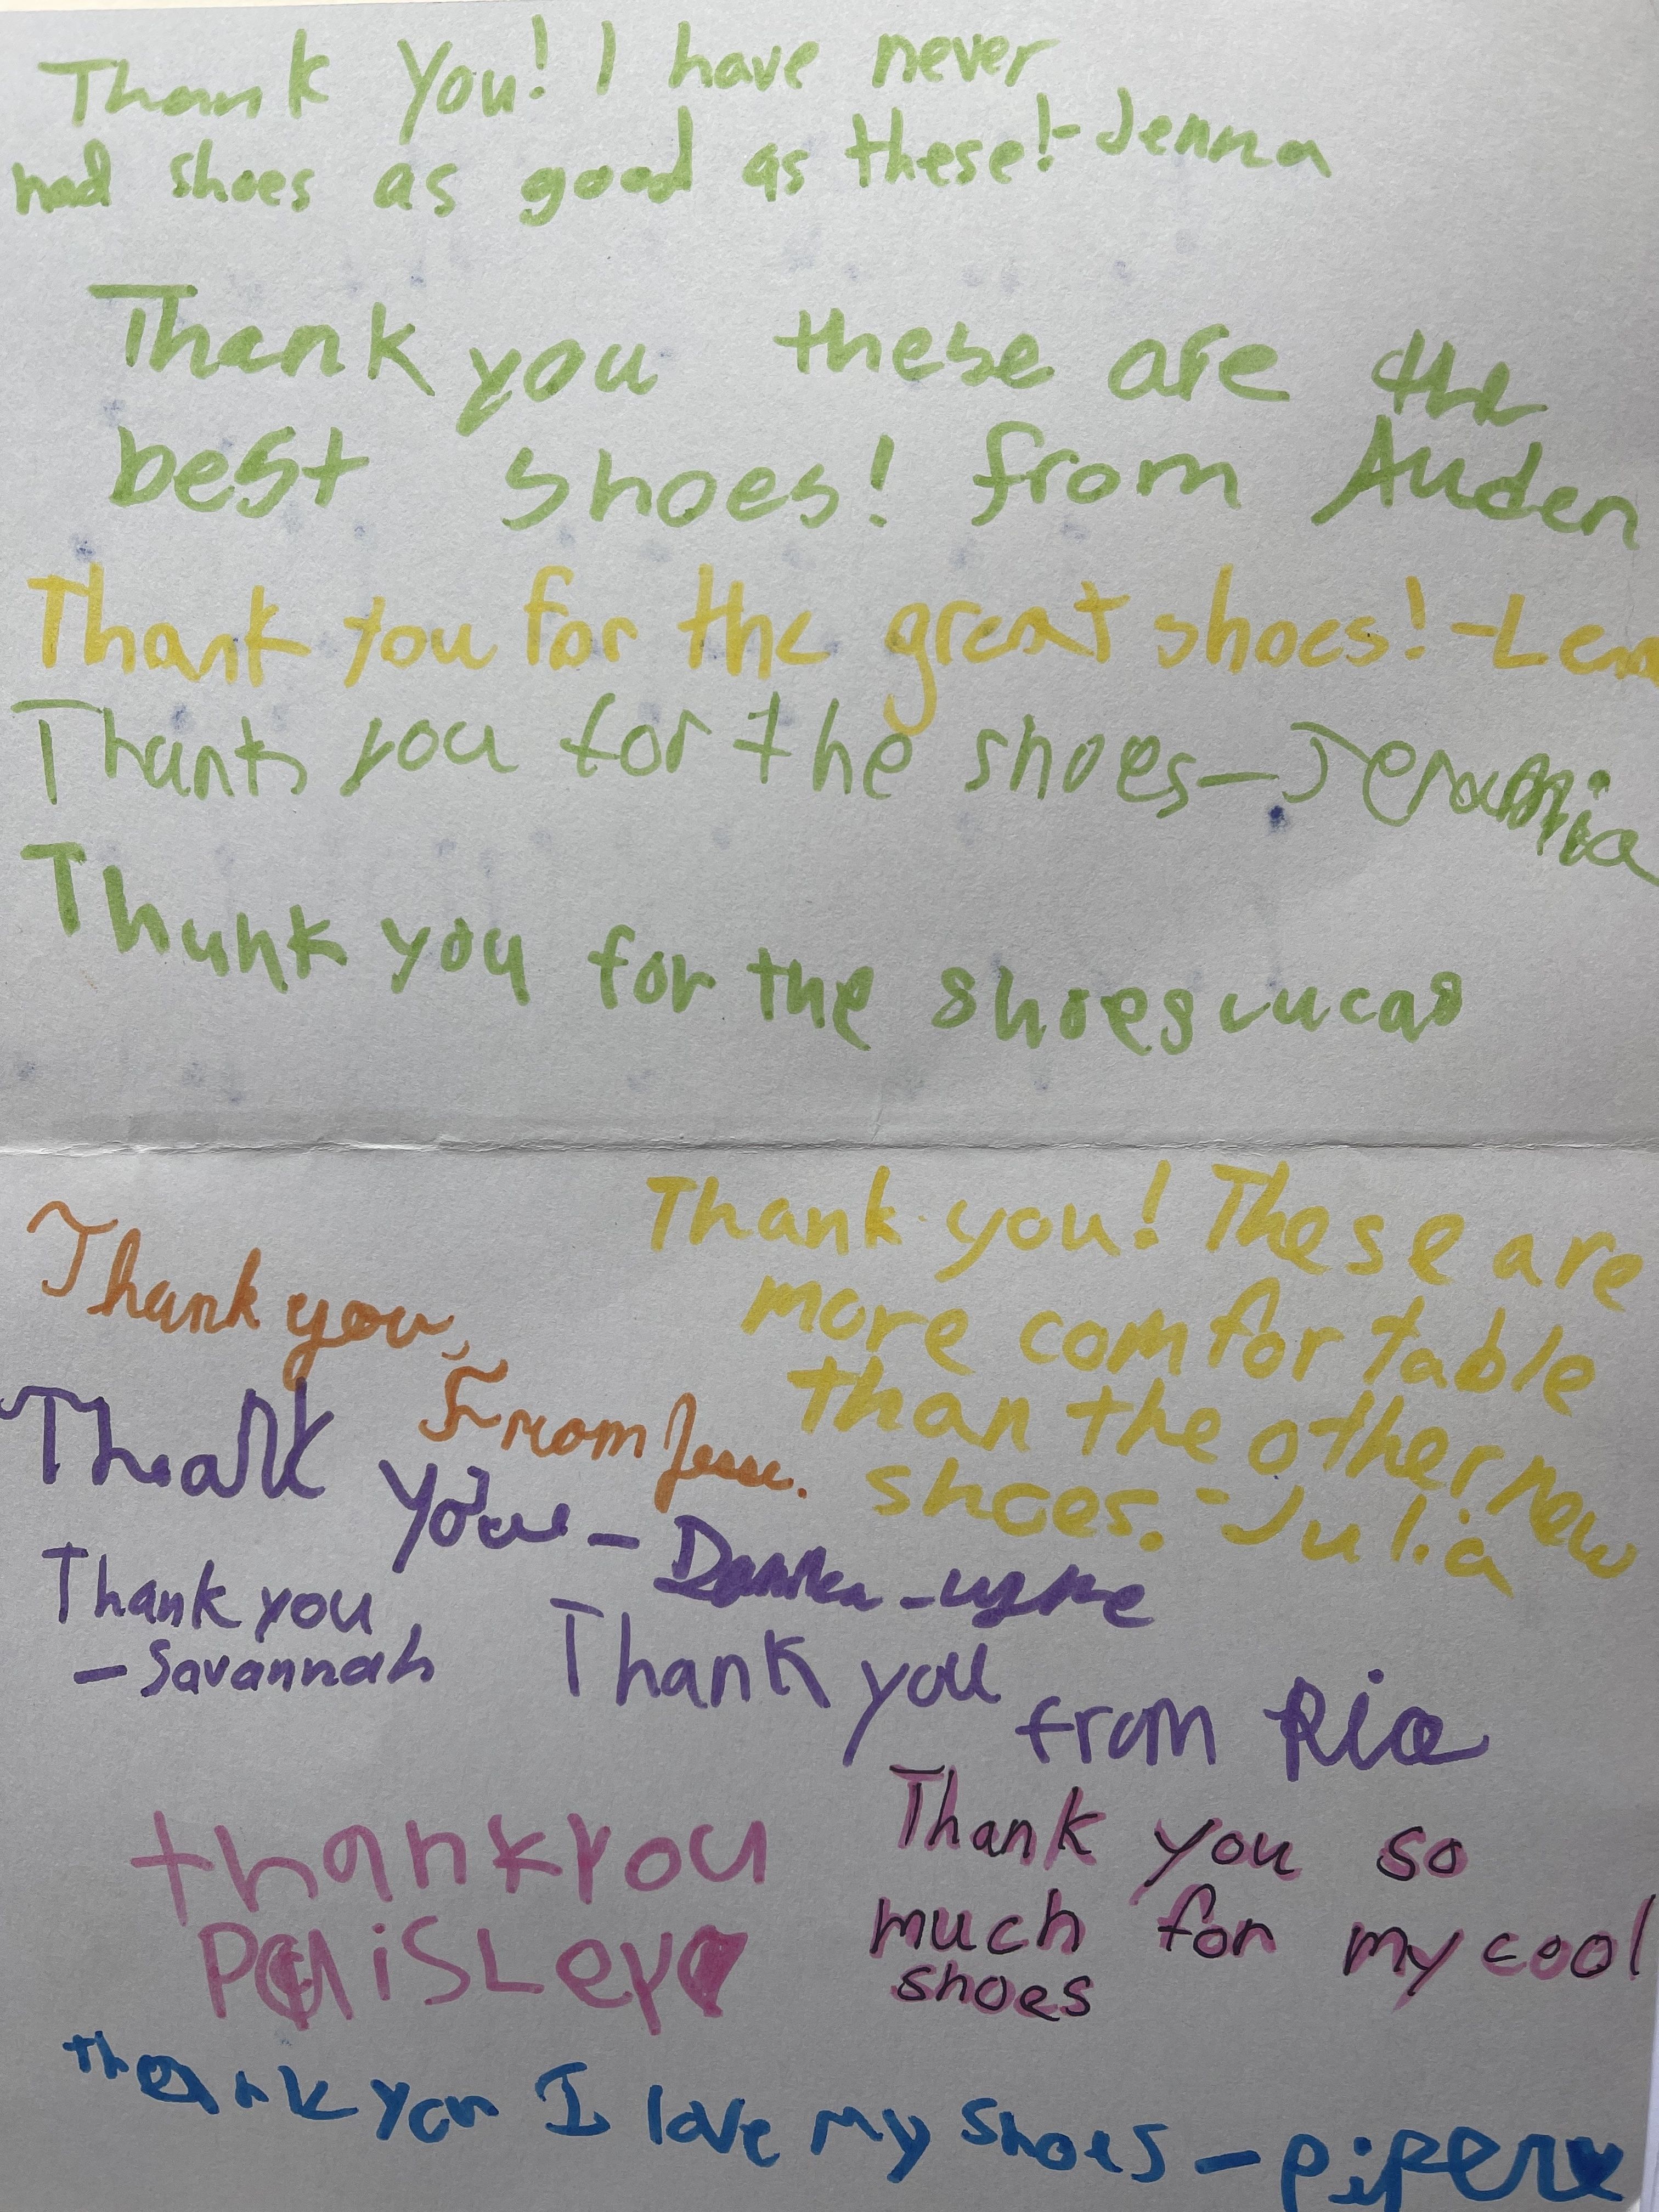 Thank you! I have never
had shoes as good as these! - Jenna
Thank you these are the
best shoes! from Auden
Thank you for the great shoes! -Lena
Thank you for the shoes -
Thank you for the shoes Lucas
Thank you,
From Jesse.
Thank you! These are
more comfortable
than the other new
shoes. - Julia
Thank
you -
Thank you
- Savannah
Thank you
from Ria
Thank you so
much for my cool
shoes
thank you
PaiSLey
thank you I love my shoes - piper